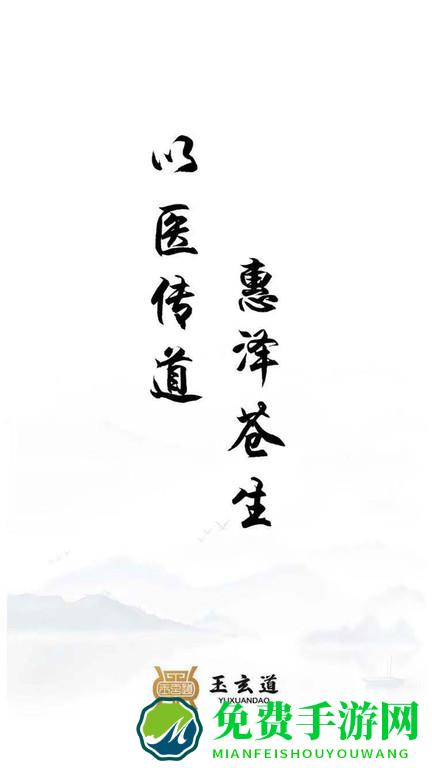 以医传道
惠泽苍生
玉玄道
YUXUANDAO
免费手游网
MIANFEISHOUYOUWANG